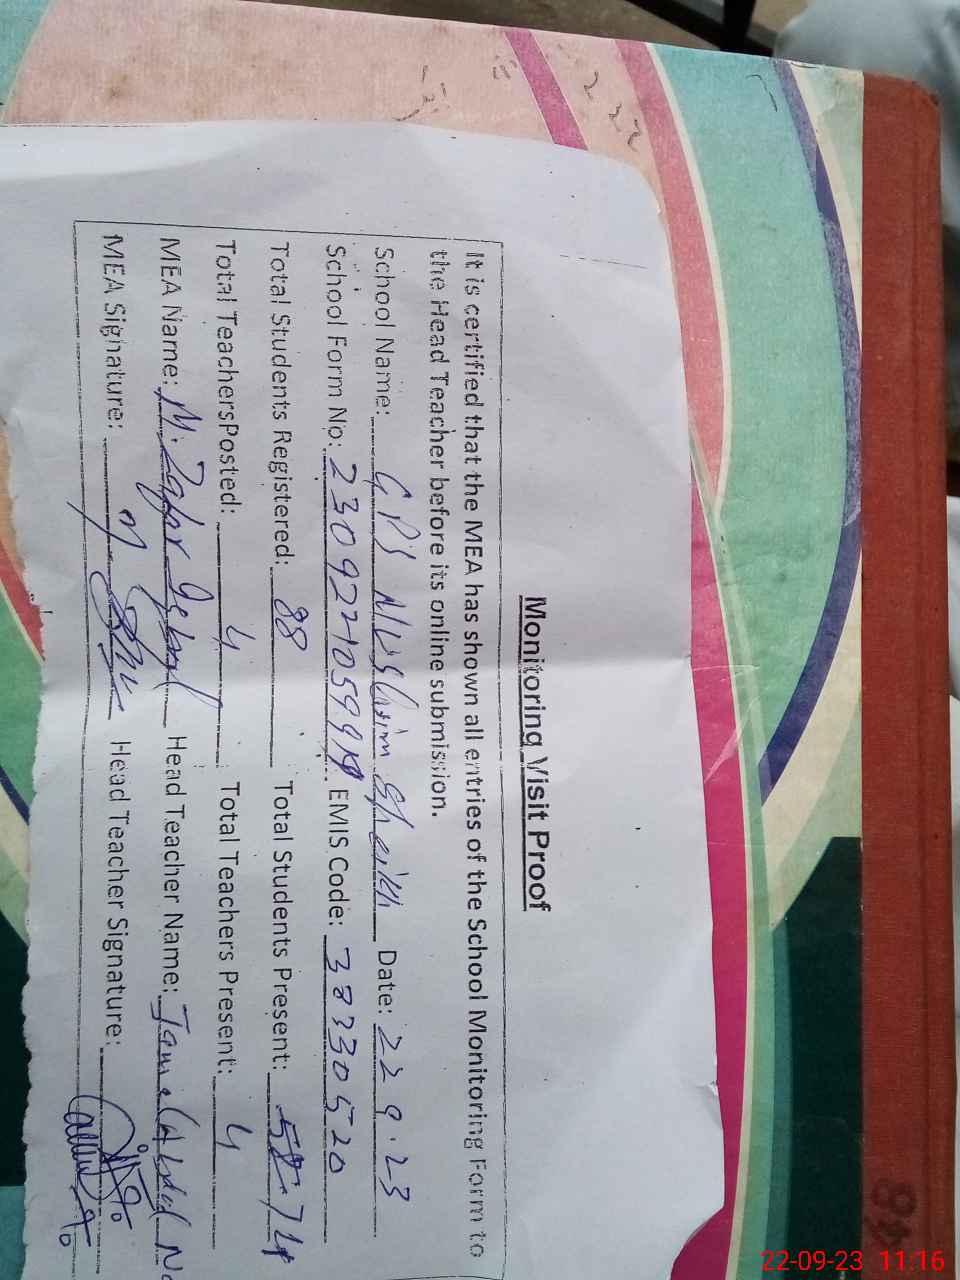 Monitoring Visit Proof
It is certified that the MEA has shown all entries of the School Monitoring Form to
the Head Teacher before its online submission.
School Name: GPS Muslim Sheikh Date: 22 9.23
School Form No: EMIS Code: 38330520
Total Students Registered: 88 Total Students Present: 74
Total TeachersPosted: 4 Total Teachers Present: 4
MEA Name: M. Zafar Iqbal Head Teacher Name:
MEA Signature: Head Teacher Signature:
22-09-23 11:16